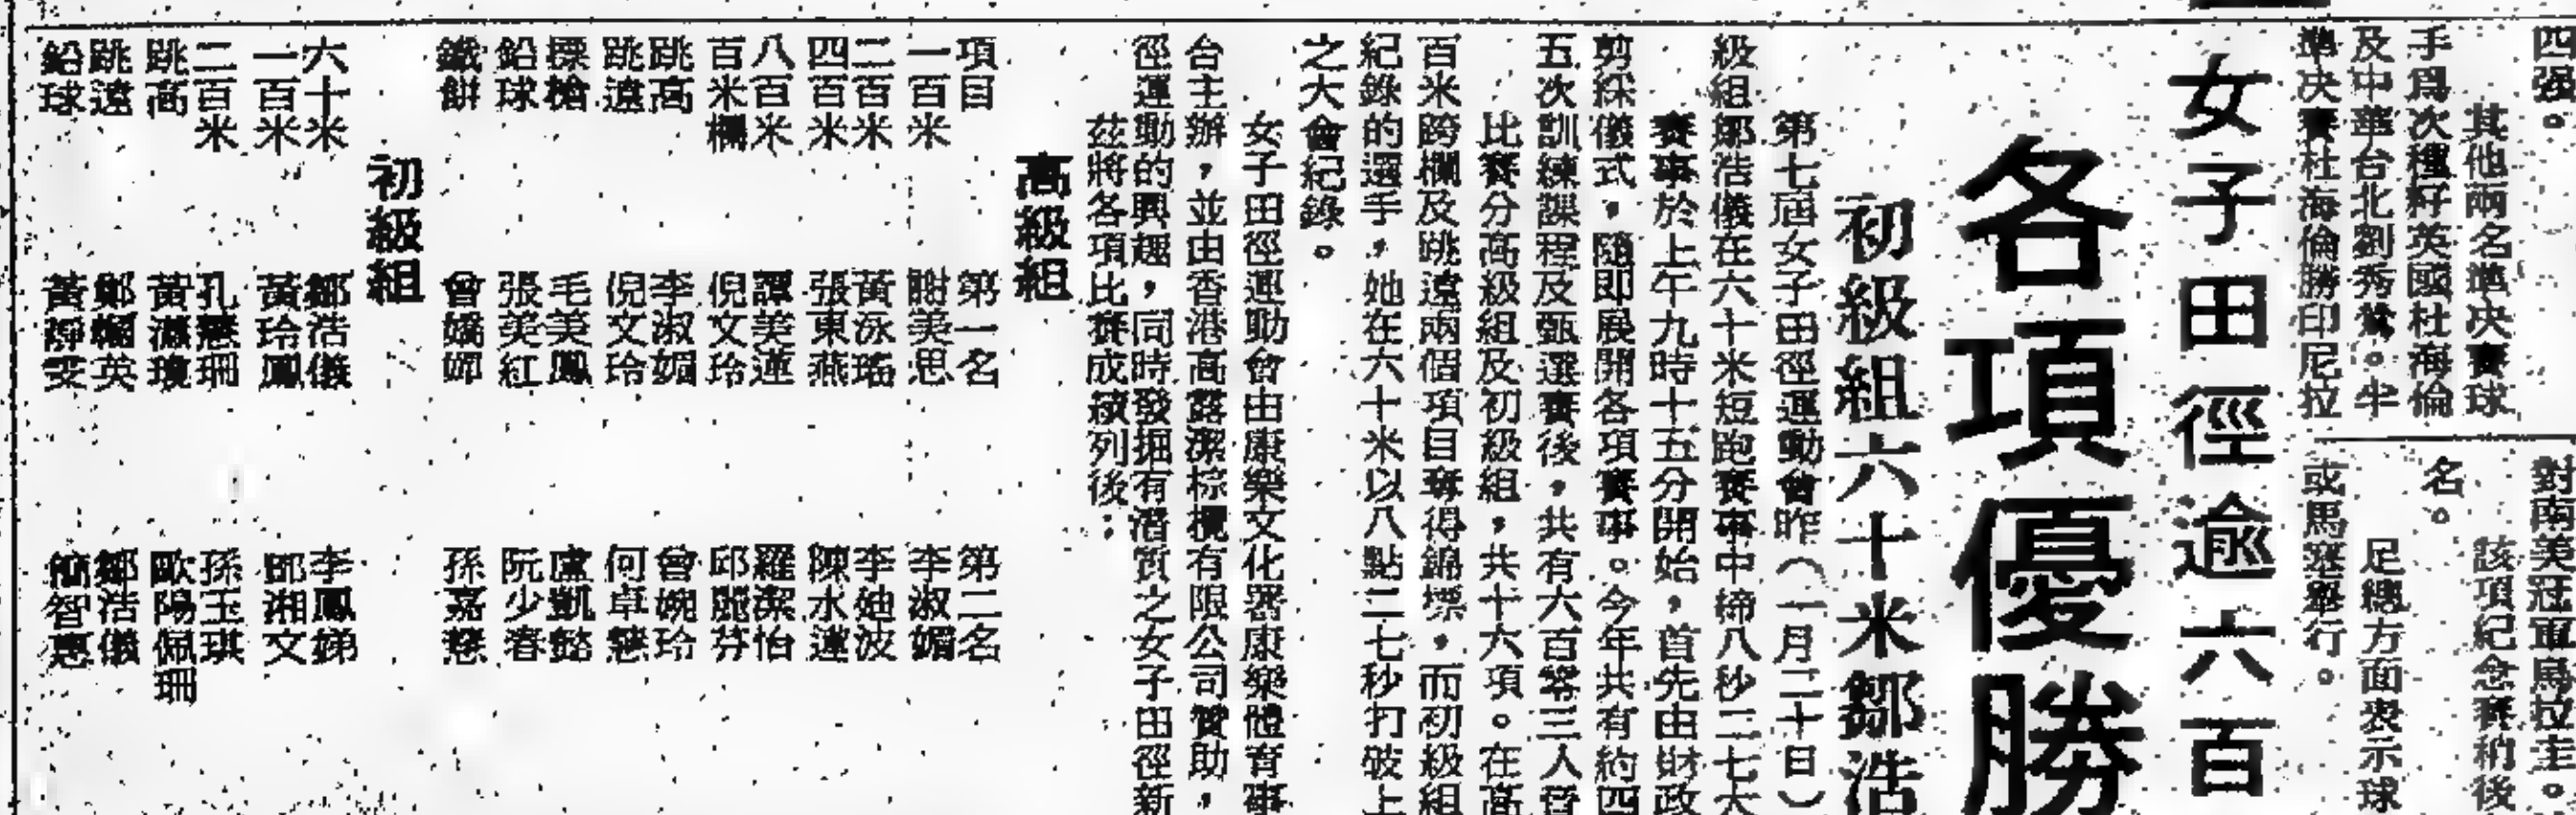 四强。
其他兩名準决賽球
手爲次種籽英國杜海倫
及中華台北劉秀鶯。半
準决賽杜海倫勝印尼拉
對南美冠軍烏拉圭。
名。
該項紀念賽稍後
足總方面表示球
或馬塞舉行。
女子田徑逾六百
各項優勝
初級組六十米鄒浩
第七屆女子田徑運動會昨（一月三十日）
級組鄒浩儀在六十米短跑賽事中締八秒二七大
賽事於上午九時十五分開始，首先由財政
剪綵儀式，隨即展開各項賽事。今年共有約四
五次訓練課程及甄選賽後，共有六百零三人晉
比賽分高級組及初級組，共十六項。在高
百米跨欄及跳遠兩個項目奪得錦標，而初級組
紀錄的選手，她在六十米以八點二七秒打破上
之大會紀錄。
女子田徑運動會由康樂文化署康樂體育事
台主辦，並由香港高露潔棕欖有限公司贊助，
徑運動的興趣，同時發掘有潛質之女子田徑新
茲將各項比賽成績列後：
高級組
項目 第一名 第二名
一百米 謝美思 李淑媚
二百米 黃泳瑤 李妣波
四百米 張東燕 陳水蓮
八百米 譚美蓮 羅潔怡
百米欄 倪文玲 邱麗芬
跳高 李淑媚 曾婉玲
跳遠 倪文玲 何卓慧
標槍 毛美鳳 盧凱懿
鉛球 張美紅 阮少春
鐵餅 曾嬌 孫嘉慧
初級組
六十米 鄒浩儀 李鳳娣
一百米 黃玲鳳 鄧湘文
二百米 孔慧珊 孫玉琪
跳高 黃瓊 歐陽佩珊
跳遠 鄭嫻英 鄒浩儀
鉛球 黃靜雯 簡智惠